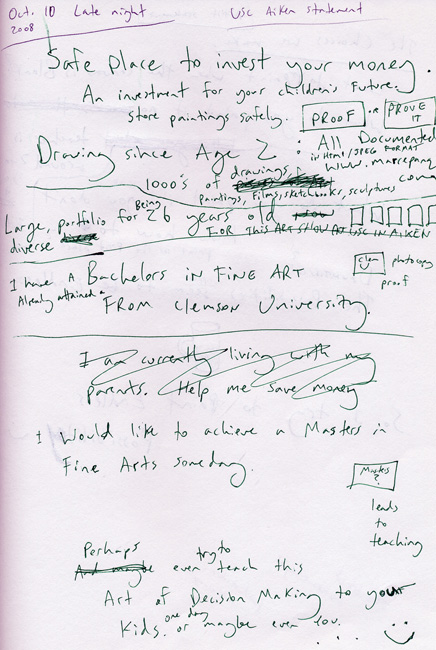 Oct. 10 Late night USC Aiken statement
2008
Safe place to invest your money.
An investment for your children's future.
store paintings safely. PROOF or PROVE IT
Drawing since Age 2 : All Documented
in HTML/JPEG FORMAT
www.marcepang.com
1000's of drawings,
Paintings, films, sketchbooks, sculptures
Large, portfolio for Being 26 years old
diverse
FOR THIS ART SHOW AT USC IN AIKEN
I have a Bachelors in FINE ART
Clem photocopy
proof
Already attained a
FROM Clemson University.
I am currently living with my
parents. Help me save money
I would like to achieve a Masters in
Fine Arts someday.
Masters
?
leads
to
teaching
Perhaps try to
And maybe even teach this
Art of Decision Making to your
Kids. one day or maybe even you.